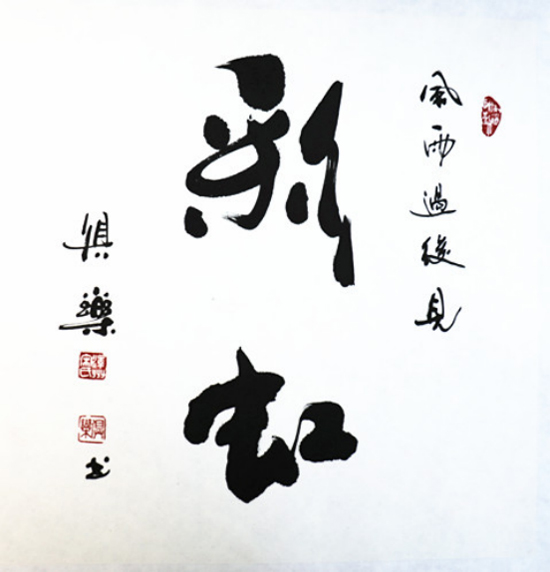 風雨過後見
彩虹
俱樂
书